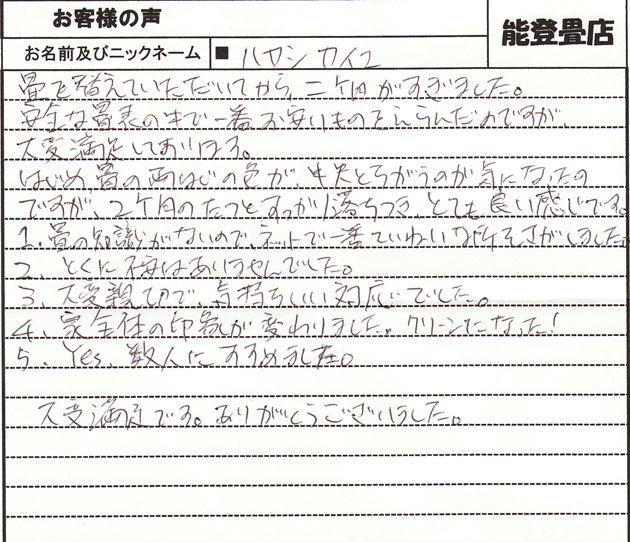 お客様の声
能登畳店
お名前及びニックネーム ■ ハヤシ カイコ
畳を替えていただいてから、二ケ月がすぎました。
安全な畳表の中で一番お安いものをえらんだのですが、
大変満足しております。
はじめ、畳の両はじの色が、中央とちがうのが気になったの
ですが、2ケ月のたつとすっかり落ちつき、とても良い感じです。
1. 畳の知識がないので、ネットで一番ていねいな所をさがしました。
2、とくに不安はありませんでした。
3、大変親切で、気持ちいい対応でした。
4、家全体の印象が変わりました。クリーンになった!
5、Yes、数人にすすめました。
大変満足です。ありがとうございました。